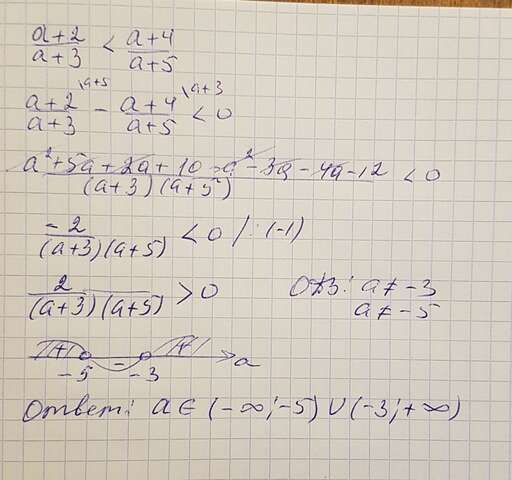 (a+2)/(a+3) < (a+4)/(a+5)
(a+2)/(a+3) \a+5 - (a+4)/(a+5) \a+3 < 0
(a²+5a+2a+10-a²-3a-4a-12)/((a+3)(a+5)) < 0
-2/((a+3)(a+5)) < 0 /:(-1)
2/((a+3)(a+5)) > 0 ОДЗ: a≠-3
a≠-5
+ - + a
-5 -3
Ответ: a∈(-∞;-5)∪(-3;+∞)